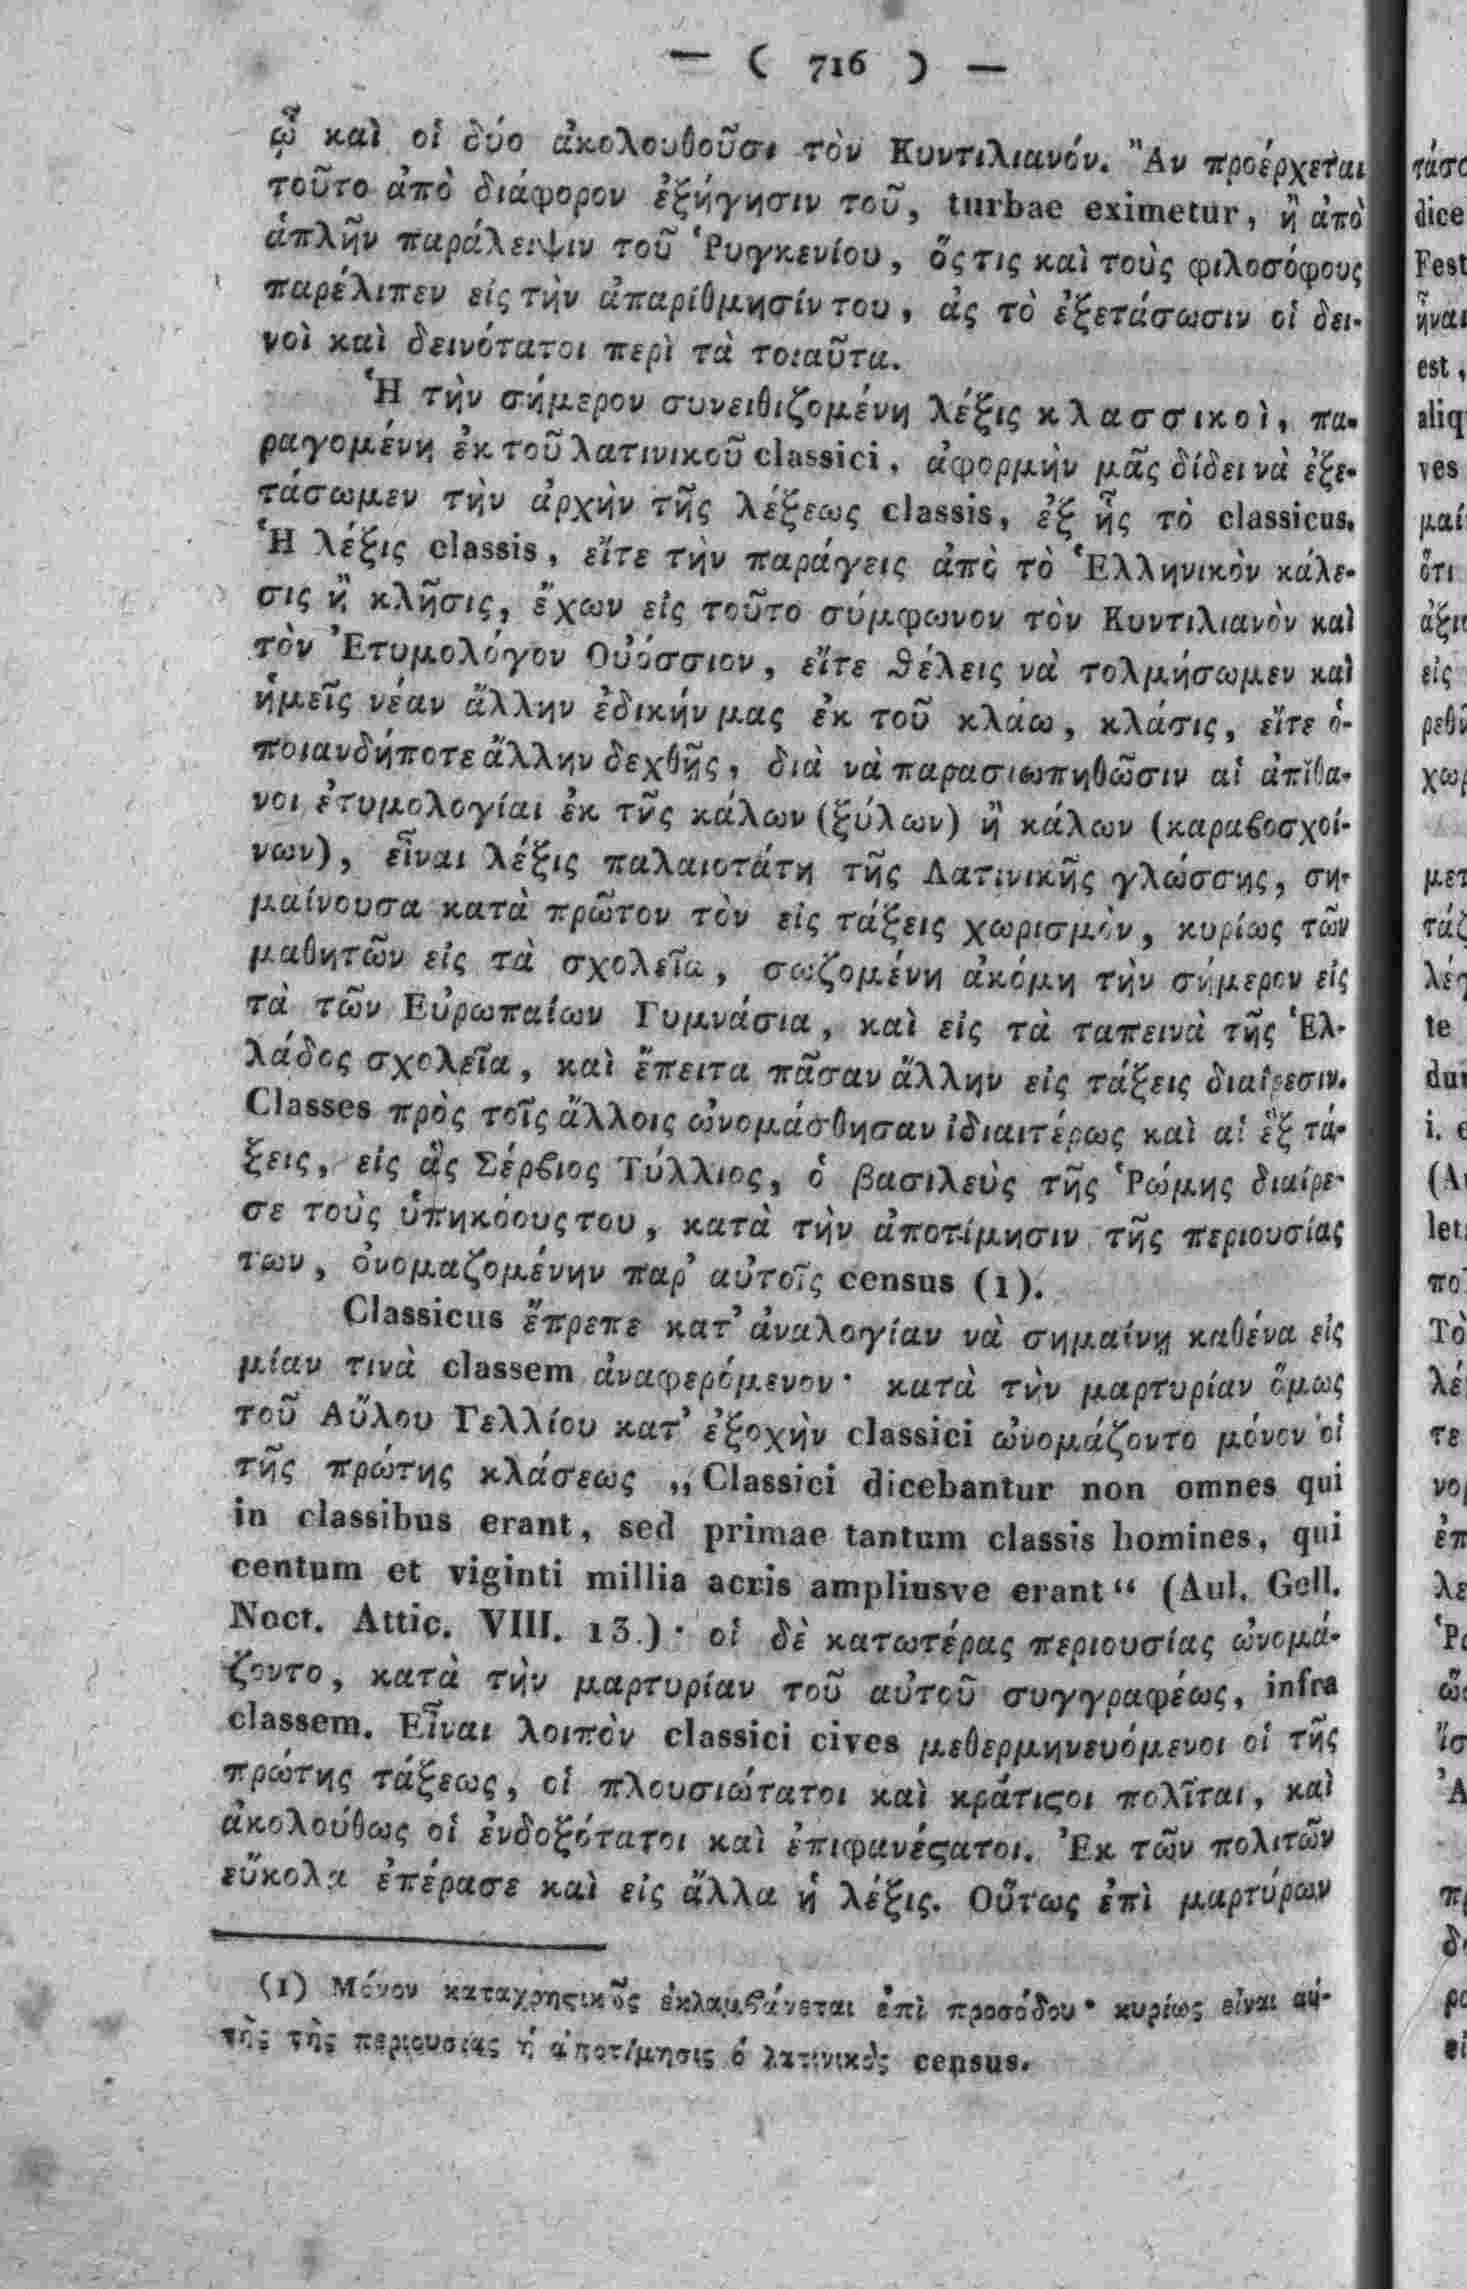 — ( 716 ) —
ᾧ καὶ οἱ δύο ἀκολουθοῦσι τὸν Κυντιλιανόν. Ἂν προέρχεται
τοῦτο ἀπὸ διάφορον ἐξήγησιν τοῦ, turbae eximetur, ἢ ἀπὸ
ἁπλῆν παράλειψιν τοῦ Ῥυγκενίου, ὅςτις καὶ τοὺς φιλοσόφους
παρέλιπεν εἰς τὴν ἀπαρίθμησίν του, ἂς τὸ ἐξετάσωσιν οἱ δει-
νοὶ καὶ δεινότατοι περὶ τὰ τοιαῦτα.
Ἡ τὴν σήμερον συνειθιζομένη λέξις κλασσικοὶ, πα-
ραγομένη ἐκ τοῦ λατινικοῦ classici, ἀφορμὴν μᾶς δίδει νὰ ἐξε-
τάσωμεν τὴν ἀρχὴν τῆς λέξεως classis, ἐξ ἧς τὸ classicus.
Ἡ λέξις classis, εἴτε τὴν παράγεις ἀπὸ τὸ Ἑλληνικὸν κάλε-
σις ἢ κλῆσις, ἔχων εἰς τοῦτο σύμφωνον τὸν Κυντιλιανὸν καὶ
τὸν Ἐτυμολόγον Οὐόσσιον, εἴτε θέλεις νὰ τολμήσωμεν καὶ
ἡμεῖς νέαν ἄλλην ἐδικήν μας ἐκ τοῦ κλάω, κλάσις, εἴτε ὁ-
ποιανδήποτε ἄλλην δεχθῇς, διὰ νὰ παρασιωπηθῶσιν αἱ ἀπίθα-
νοι ἐτυμολογίαι ἐκ τῆς κάλων (ξύλων) ἢ κάλων (καραβοσχοί-
νων), εἶναι λέξις παλαιοτάτη τῆς Λατινικῆς γλώσσης, ση-
μαίνουσα κατὰ πρῶτον τὸν εἰς τάξεις χωρισμὸν, κυρίως τῶν
μαθητῶν εἰς τὰ σχολεῖα, σωζομένη ἀκόμη τὴν σήμερον εἰς
τὰ τῶν Εὐρωπαίων Γυμνάσια, καὶ εἰς τὰ ταπεινὰ τῆς Ἑλ-
λάδος σχολεῖα, καὶ ἔπειτα πᾶσαν ἄλλην εἰς τάξεις διαίρεσιν.
Classes πρὸς τοῖς ἄλλοις ὠνομάσθησαν ἰδιαιτέρως καὶ αἱ ἓξ τά-
ξεις, εἰς ἃς Σέρβιος Τύλλιος, ὁ βασιλεὺς τῆς Ῥώμης διαίρε-
σε τοὺς ὑπηκόους του, κατὰ τὴν ἀποτίμησιν τῆς περιουσίας
των, ὀνομαζομένην παρ' αὐτοῖς census (1).
Classicus ἔπρεπε κατ' ἀναλογίαν νὰ σημαίνῃ καθένα εἰς
μίαν τινὰ classem ἀναφερόμενον· κατὰ τὴν μαρτυρίαν ὅμως
τοῦ Αὔλου Γελλίου κατ' ἐξοχὴν classici ὠνομάζοντο μόνον οἱ
τῆς πρώτης κλάσεως „Classici dicebantur non omnes qui
in classibus erant, sed primae tantum classis homines, qui
centum et viginti millia acris ampliusve erant“ (Aul. Gell.
Noct. Attic. VIII. 13.)· οἱ δὲ κατωτέρας περιουσίας ὠνομά-
ζοντο, κατὰ τὴν μαρτυρίαν τοῦ αὐτοῦ συγγραφέως, infra
classem. Εἶναι λοιπὸν classici cives μεθερμηνευόμενοι οἱ τῆς
πρώτης τάξεως, οἱ πλουσιώτατοι καὶ κράτιϛοι πολῖται, καὶ
ἀκολούθως οἱ ἐνδοξότατοι καὶ ἐπιφανέϛατοι. Ἐκ τῶν πολιτῶν
εὔκολα ἐπέρασε καὶ εἰς ἄλλα ἡ λέξις. Οὕτως ἐπὶ μαρτύρων
(1) Μόνον καταχρηϛικῶς ἐκλαμβάνεται ἐπὶ προσόδου· κυρίως εἶναι αὐ-
τῆς τῆς περιουσίας ἡ ἀποτίμησις ὁ λατινικὸς census.